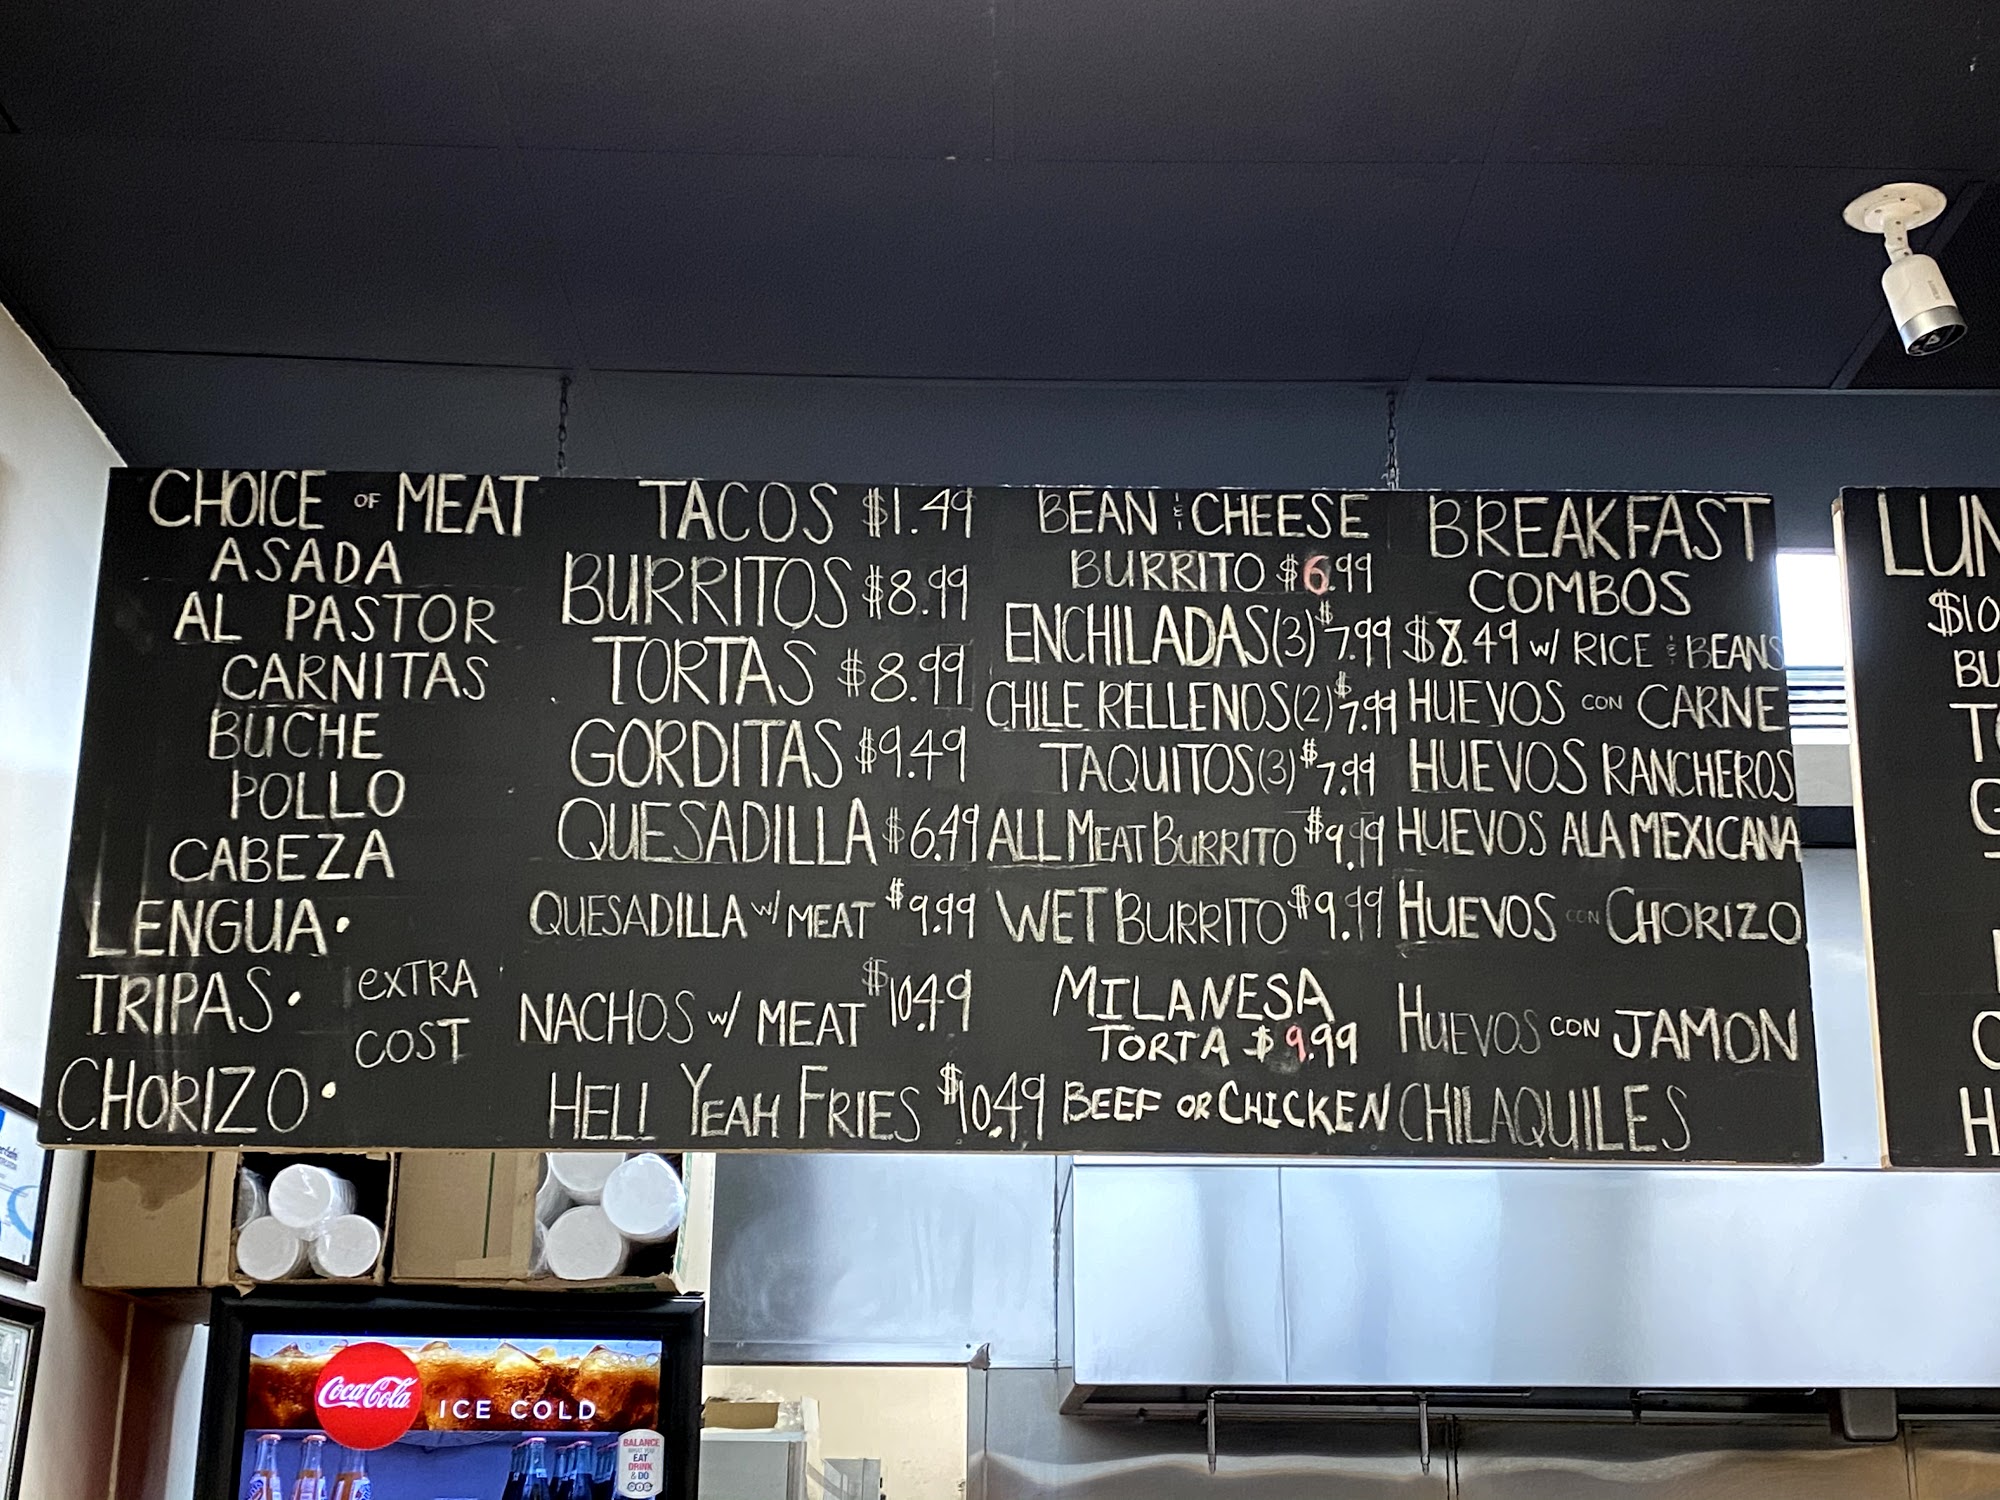 CHOICE OF MEAT
ASADA
AL PASTOR
CARNITAS
BUCHE
POLLO
CABEZA
LENGUA •
TRIPAS • EXTRA
COST
CHORIZO •
TACOS $1.49
BURRITOS $8.99
TORTAS $8.99
GORDITAS $9.49
QUESADILLA $6.49
QUESADILLA W/ MEAT $9.99
NACHOS W/ MEAT $10.49
HELL YEAH FRIES $10.49
BEAN & CHEESE
BURRITO $6.99
ENCHILADAS(3) $7.99
CHILE RELLENOS(2) $7.99
TAQUITOS(3) $7.99
ALL MEAT BURRITO $9.99
WET BURRITO $9.99
MILANESA
TORTA $9.99
BEEF OR CHICKEN
BREAKFAST
COMBOS
$8.49 W/ RICE & BEANS
HUEVOS CON CARNE
HUEVOS RANCHEROS
HUEVOS ALA MEXICANA
HUEVOS CON CHORIZO
HUEVOS CON JAMON
CHILAQUILES
LUN
$10
BU
TO
G
C
H
Coca-Cola
ICE COLD
BALANCE
WHAT YOU
EAT
DRINK
& DO